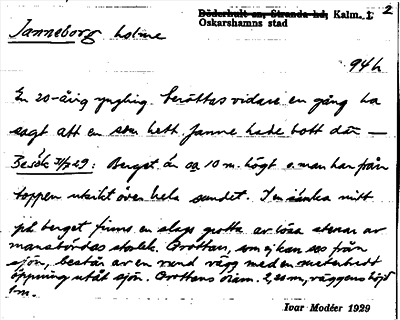 Döderhult sn, Stranda hd, Kalm. l. 2
Oskarshamns stad
Janneborg holme
94 h
En 20-årig yngling berättas vidare en gång ha
sagt att en som hett Janne hade bott där —
Besök 31/7 29: Berget är ca 10 m. högt o. man har från
toppen utsikt över hela sundet. I en sänka mitt
på berget finns en slags grotta av lösa stenar av
mansbördas storlek. Grottan, som ej kan ses från
sjön, består av en rund vägg med en meterbred
öppning utåt sjön. Grottens diam. 2,25 m, väggens höjd
1 m.
Ivar Modéer 1929